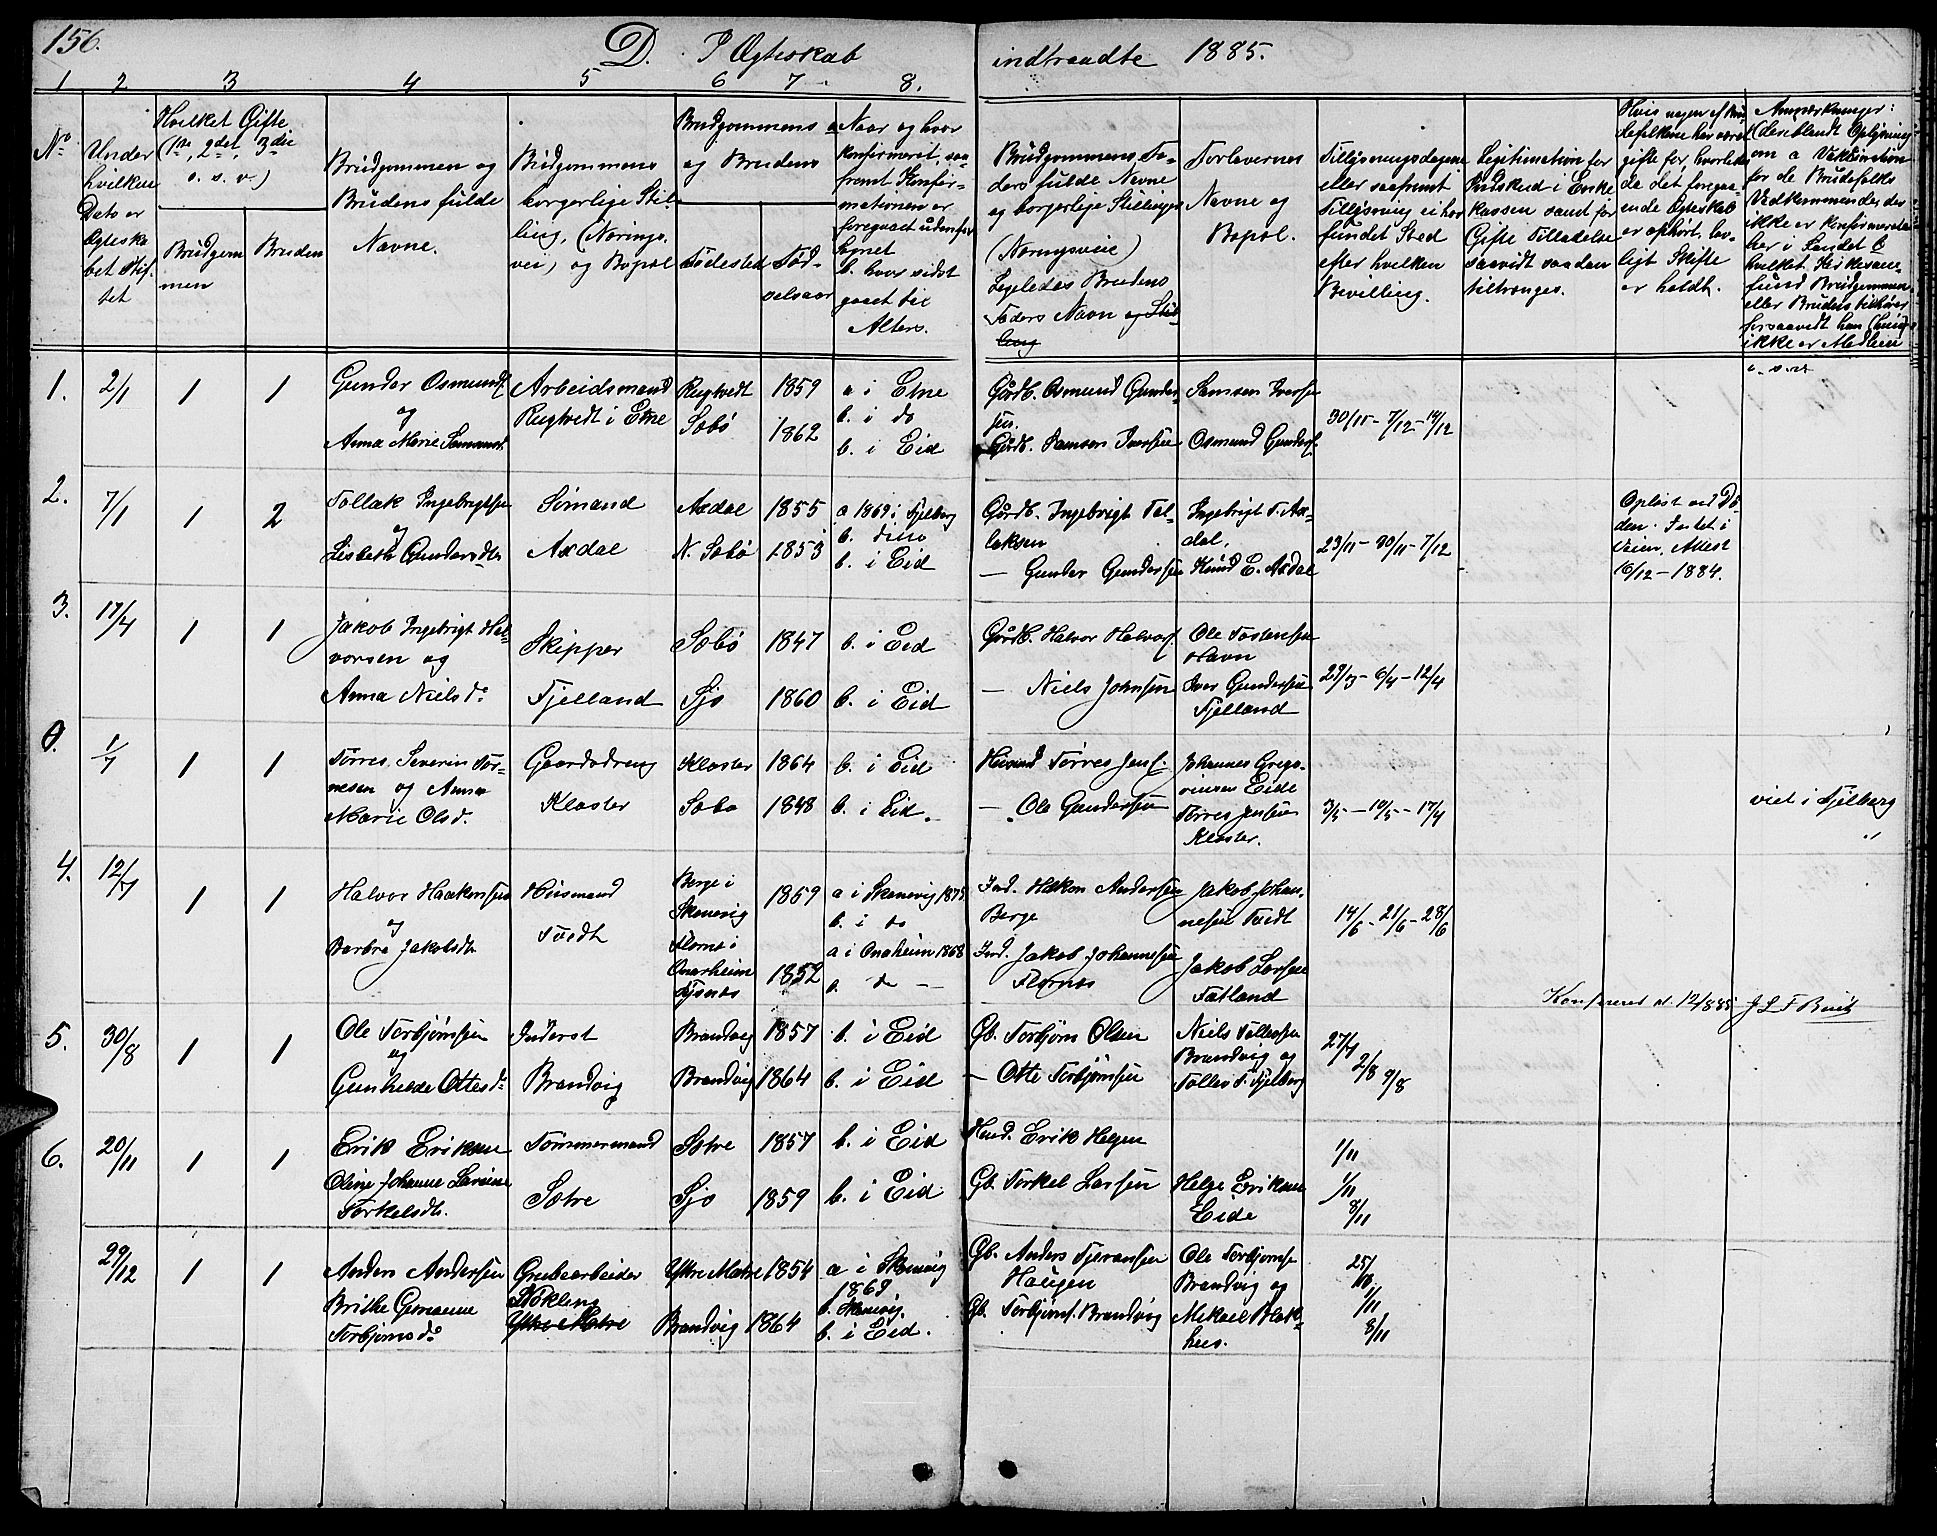 156.
D. I Ægteskab indtraadte 1885.
1 2 3 4 5 6 7 8.
No
Under
hvilken
Dato er
Ægteska
bet stif
tet
Hvilket Gifte
(1ste, 2det, 3die
o. s. v.)
Brudgom
men
Bruden
Brudgommen og
Brudens fulde
Navne.
Brudgommens
borgerlige Stil-
ling, (Nærings-
vei) og Bopæl
Brudgommens
og Brudens
Fødested
Fød-
selsaar
a Naar og hvor
konfirmeret, saa
fremt Konfir-
mationen er
foregaaet udenfor
Sognet
b. hvor sidst
gaaet til
Alters.
Brudgommens Fa-
ders fulde Navne
og borgerlige Stillinger
(Næringsveie)
Ligeledes Brudens
Faders Navn og Stil-
ling
Forlovernes
Navne og
Bopæl.
Tillysningsdagene
eller saafremt
Tillysning ei har
fundet Sted
efter hvilken
Bevilling.
Legitimation for
Indskud i Enke
kassen samt for
Gifte Tilladelse
saavidt saadan
tiltrænges.
Hvis nogen af Bru
defolkene har været
gifte før, hvorle
de det foregaa-
ende Ægteskab
er ophørt, lov-
ligt Skifte
er holdt.
Anmærkninger:
(deriblandt Oplysning
om a Vaktsination
for de Brudefolks
Vedkommende der
ikke er konfirmerede
her i Landet b
hvilket Kirkesam-
fund Brudgommen
eller Bruden tilhører
forsaavidt han (hun)
ikke er Medlem
o. s. v.
1. 2/1 1 1
Gunder Osmunds.
og
Anna Marie Samsonsd.
Arbeidsmand
Rugtvedt i Etne
Rugtvedt 1859
Søbø 1862
a i Etne
b. i do
b. i Eid
Gårdb. Osmund Gunder-
sen.
Gårdb. Samson Iversen
Samson Iversen
Osmund Gunders.
30/11 - 7/12 - 14/12
2. 7/1 1 2
Tollak Ingebrigtsen
og
Lisbeth Gundersdtr
Sømand
Axdal
Axdal 1855
N. Søbø 1853
a 1869 i Fjelberg
b. dino
b. i Eid
Gårdb. Ingebrigt Tol-
laksen
— Gunder Gundersen
Ingebrigt T. Ax-
dal,
Knud E. Axdal
23/11 - 30/11 - 7/12
Opløst ved Dø-
den. Intet i
Veien, Attest
16/12 - 1884.
3. 17/4 1 1
Jakob Ingebrigt Hal-
vorsen og
Anna Nielsd.
Skipper
Fjelland
Søbø 1847
Sjo 1860
b. i Eid
b. i Eid
Gårdb. Halvor Halvors.
— Niels Johnsen
Ole Tostensen
Havn
Iver Gundersen
Fjelland
29/3 - 6/4 - 12/4
0. 1/7 1 1
Tørres Severin Tør-
resen og Anna
Marie Olsd.
Gaardsdreng
Kloster
Kloster 1864
Søbø 1848
b. i Eid
b. i Eid.
Husmd Tørres Jens.
— Ole Gundersen
Johannes Grego-
riusen Eide
Tørres Jensen
Kloster.
3/5 - 10/5 - 17/4
viet i Fjelberg
4. 12/7 1 1
Halvor Haakonsen
og
Barbra Jakobsdtr
Husmand
Tvedt
Berge i
Skonevig 1859
Flornes i
Onarheim
Tysnes 1852
a i Skonevig 1875
b. i do
a i Onaheim 1868
b. do —
Ind. Håkon Andersen
Berge
Ind. Jakob Johannesen
Flornes
Jakob Johan-
nesen Tvedt
Jakob Larsen
Fatland
14/6 - 21/6 - 28/6
5. 30/8 1 1
Ole Torbjørnsen
og
Gunhilde Ottesd.
Inderst
Brandvig
Brandvig 1857
Brandvig 1864
b. i Eid
b. i Eid
Gb. Torbjørn Olsen
— Otte Torbjørnsen
Niels Tollevsen
Brandvig og
Tollev T. Fjelberg
27/7
2/8 9/8
6. 20/11 1 1
Erik Eriksen
Oline Johanne Lavine
Torkelsdtr.
Tømmermand
Sætre
Sætre 1857
Sjo 1859
b. i Eid
b. i Eid
Husmd. Erik Helgen
Gb. Torkel Larsen
Helge Eriksen
Eide
1/11
1/11
8/11
29/12 1 1
Anders Andersen
Brithe Gemaine
Torbjørnsd.
Grubearbeider
Stokleng
Ytre Matre
Ytre Matre 1854
Brandvig 1864
a i Skonevig
1869
b. Skonevig.
b. i Eid.
Gb. Anders Tjeransen
Haugen
Gb. Torbjørns. Brandvig
Ole Torbjørns
Brandvig og
Mikael Blak-
hus.
25/10
1/11
8/11